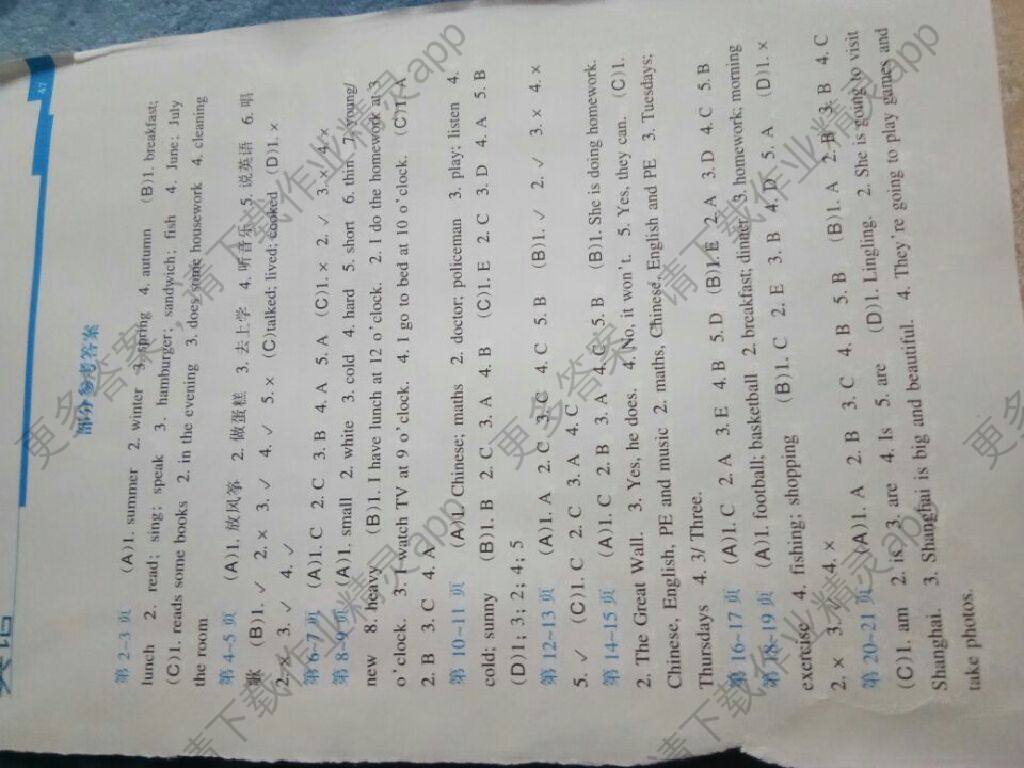 部分参考答案
第 2~3 页 (A)1. summer 2. winter 3. spring 4. autumn (B)1. breakfast;
lunch 2. read; sing; speak 3. hamburger; sandwich; fish 4. June; July
(C)1. reads some books 2. in the evening 3. does some housework 4. cleaning
the room
第 4~5 页 (A)1. 放风筝 2. 做蛋糕 3. 去上学 4. 听音乐 5. 说英语 6. 唱
歌 (B)1. ✓ 2. × 3. ✓ 4. ✓ 5. × (C)talked; lived; cooked (D)1. ×
2. × 3. ✓ 4. ✓
第 6~7 页 (A)1. C 2. C 3. B 4. A 5. A (C)1. × 2. ✓ 3. × 4. ×
第 8~9 页 (A)1. small 2. white 3. cold 4. hard 5. short 6. thin 7. young/
new 8. heavy (B)1. I have lunch at 12 o'clock. 2. I do the homework at 3
o'clock. 3. I watch TV at 9 o'clock. 4. I go to bed at 10 o'clock. (C)1. A
2. B 3. C 4. A
第 10~11 页 (A)1. Chinese; maths 2. doctor; policeman 3. play; listen 4.
cold; sunny (B)1. B 2. C 3. A 4. B (C)1. E 2. C 3. D 4. A 5. B
(D)1; 3; 2; 4; 5
第 12~13 页 (A)1. A 2. C 3. C 4. C 5. B (B)1. ✓ 2. ✓ 3. × 4. ×
5. ✓ (C)1. C 2. C 3. A 4. C
第 14~15 页 (A)1. C 2. B 3. A 4. C 5. B (B)1. She is doing homework.
2. The Great Wall. 3. Yes, he does. 4. No, it won't. 5. Yes, they can. (C)1.
Chinese, English, PE and music 2. maths, Chinese, English and PE 3. Tuesdays;
Thursdays 4. 3/ Three.
第 16~17 页 (A)1. C 2. A 3. E 4. B 5. D (B)1. E 2. A 3. D 4. C 5. B
第 18~19 页 (A)1. football; basketball 2. breakfast; dinner 3. homework; morning
exercise 4. fishing; shopping (B)1. C 2. E 3. B 4. D 5. A (D)1. ×
2. × 3. ✓ 4. ×
第 20~21 页 (A)1. A 2. B 3. C 4. B 5. B (B)1. A 2. B 3. B 4. C
(C)1. am 2. is 3. are 4. Is 5. are (D)1. Lingling. 2. She is going to visit
Shanghai. 3. Shanghai is big and beautiful. 4. They're going to play games and
take photos.
更多答案，请下载作业精灵app
更多答案，请下载作业精灵app
更多
请下载作业精灵app
请下载作业精灵app